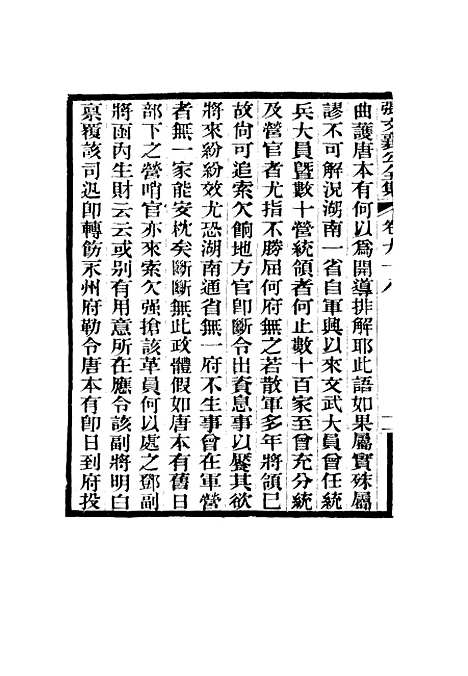 張文襄公全集 卷九十八
曲護唐本有何以爲開導排解耶此語如果屬實殊屬
謬不可解況湖南一省自軍興以來文武大員曾任統
兵大員曁數十營統領者何止數十百家至曾充分統
及營官者尤指不勝屈何府無之若散軍多年將領已
故尙可追索欠餉地方官卽斷令出資息事以饜其欲
將來紛紛效尤恐湖南通省無一府不生事曾在軍營
者無一家能安枕矣斷斷無此政體假如唐本有舊日
部下之營哨官亦來索欠强搶該革員何以處之鄧副
將函內生財云云或别有用意所在應令該副將明白
稟覆該司迅卽轉飭永州府勒令唐本有卽日到府投